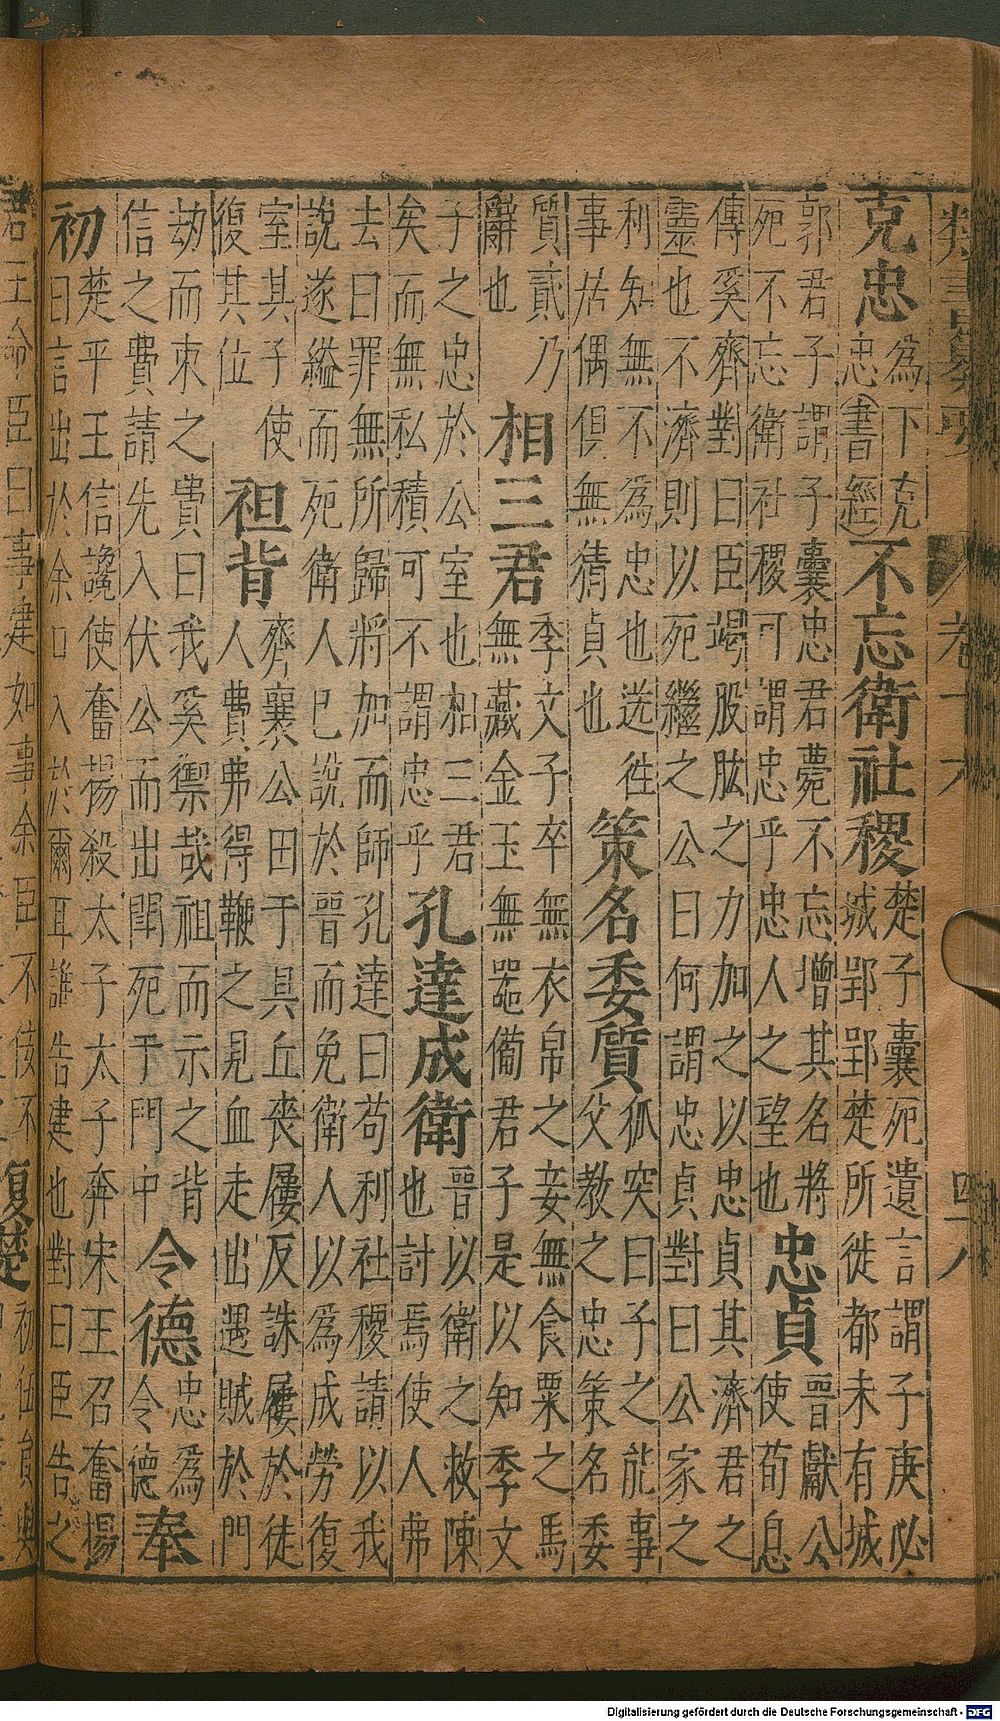 克忠
為下克
忠書經
不忘衛社稷
楚子囊死遺言謂子庚必
城郢郢楚所徙都未有城
郭君子謂子囊忠君薨不忘增其名將
死不忘衛社稷可謂忠乎忠人之望也
忠貞
晉獻公
使荀息
傅奚齊對曰臣竭股肱之力加之以忠貞其濟君之
靈也不濟則以死繼之公曰何謂忠貞對曰公家之
利知無不為忠也送徃
事居偶俱無猜貞也
策名委質
狐突曰子之能事
父教之忠策名委
質貳乃
辭也
相三君
季文子卒無衣帛之妾無食粟之馬
無藏金玉無噐俻君子是以知季文
子之忠於公室也相三君
矣而無私積可不謂忠乎
孔達成衛
晉以衛之救陳
也討焉使人弗
去曰罪無所歸將加而師孔達曰苟利社稷請以我
說遂縊而死衛人巳說於晉而免衛人以為成勞復
室其子使
復其位
袒背
齊襄公田于具丘丧屨反誅屨於徒
人費弗得鞭之見血走出遇賊於門
劫而束之費曰我奚禦哉袒而示之背
信之費請先入伏公而出鬬死于門中
令德
忠為
令德
奉
初
楚平王信讒使奮揚殺太子太子奔宋王召奮揚
曰言出於余口入於爾耳誰告建也對曰臣告之
君王命臣曰事建如事余臣不佞不
復楚
初伍員與
卷十六
四八
Digitalisierung gefördert durch die Deutsche Forschungsgemeinschaft - DFG